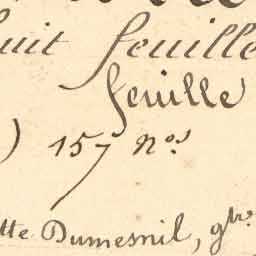 huit feuille
feuille
) 157 nos
tte Dumesnil, gbre